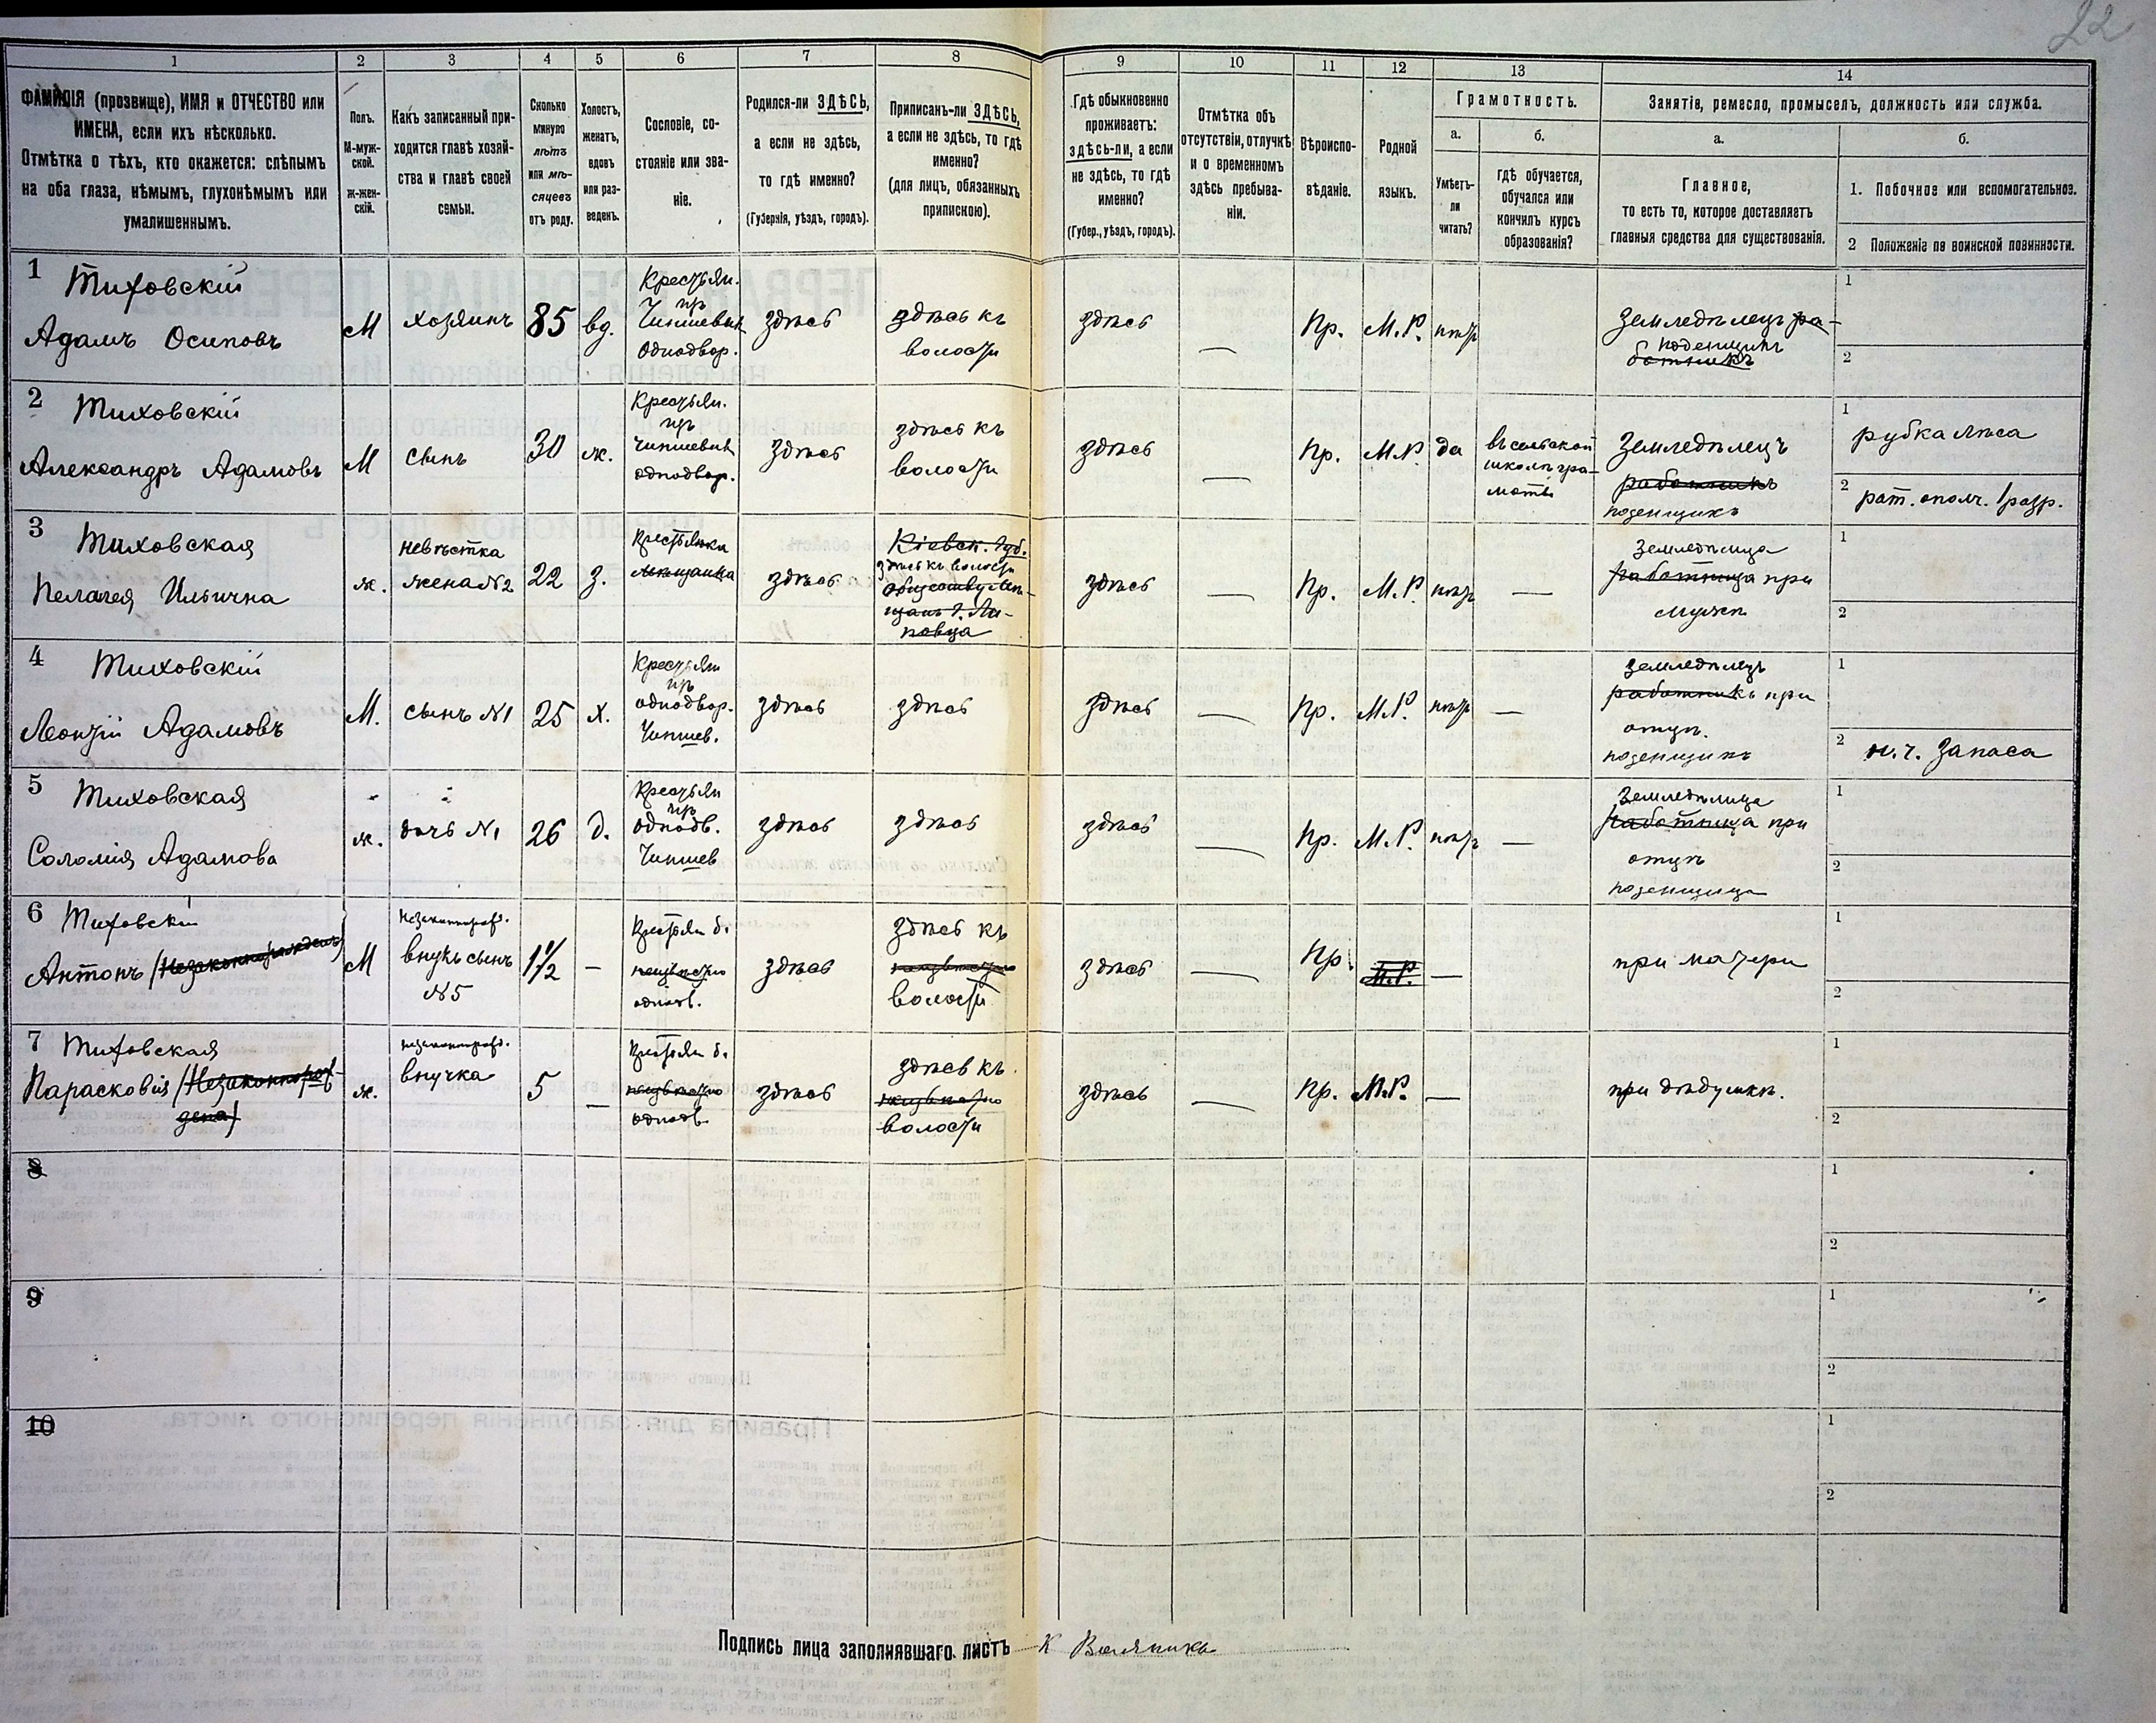 22
1
2
3
4
5
6
7
8
9
10
11
12
13
14
ФАМИЛІЯ (прозвище), ИМЯ и ОТЧЕСТВО или
ИМЕНА, если ихъ нѣсколько.
Отмѣтка о тѣхъ, кто окажется: слѣпымъ
на оба глаза, нѣмымъ, глухонѣмымъ или
умалишеннымъ.
Полъ.
М-муж-
ской.
Ж-жен-
скій.
Какъ записанный при-
ходится главѣ хозяй-
ства и главѣ своей
семьи.
Сколько
минуло
лѣтъ
или мѣ-
сяцевъ
отъ роду.
Холостъ,
женатъ,
вдовъ
или раз-
веденъ.
Сословіе, со-
стояніе или зва-
ніе.
Родился-ли ЗДѢСЬ,
а если не здѣсь,
то гдѣ именно?
(Губернія, уѣздъ, городъ).
Приписанъ-ли ЗДѢСЬ,
а если не здѣсь, то гдѣ
именно?
(для лицъ, обязанныхъ
припискою).
Гдѣ обыкновенно
проживаетъ:
здѣсь-ли, а если
не здѣсь, то гдѣ
именно?
(Губер., уѣздъ, городъ).
Отмѣтка объ
отсутствіи, отлучкѣ
и о временномъ
здѣсь пребыва-
ніи.
Вѣроиспо-
вѣданіе.
Родной
языкъ.
Грамотность.
а.
б.
Умѣетъ-
ли
читать?
гдѣ обучается,
обучался или
кончилъ курсъ
образованія?
Занятіе, ремесло, промыселъ, должность или служба.
а.
б.
Главное,
то есть то, которое доставляетъ
главныя средства для существованія.
1. Побочное или вспомогательное.
2 Положеніе по воинской повинности.
1 Тиховскій
Адамъ Осиповъ
М
хозяинъ
85
вд.
Крестьян.
изъ
Чиншевик
Однодвор.
здѣсь
здѣсь къ
волости
здѣсь
—
Пр.
М.Р.
нѣтъ
Земледѣлецъ ра-
поденщикъ
ботникъ
1
2
2 Тиховскій
Александръ Адамовъ
М
сынъ
30
ж.
Крестьян.
изъ
чиншевик
однодвор.
здѣсь
здѣсь къ
волости
здѣсь
—
Пр.
М.Р.
да
въ сельской
школѣ гра-
моты
Земледѣлецъ
работникъ
поденщикъ
1
рубка лѣса
2
рат. ополч. 1 разр.
3 Тиховская
Пелагея Ильична
ж.
невѣстка
жена №2
22
з.
Крестьянка
мѣщанка
здѣсь
Кіевск. Губ.
здѣсь къ волости
обществу мѣ-
щанъ г. Ли-
повца
здѣсь
—
Пр.
М.Р.
нѣтъ
—
Земледѣлица
работница при
мужѣ
1
2
4 Тиховскій
Леонтій Адамовъ
М.
сынъ №1
25
х.
Крестьян
изъ
однодвор.
Чиншев.
здѣсь
здѣсь
здѣсь
—
Пр.
М.Р.
нѣтъ
—
Земледѣлецъ
работникъ при
отцѣ.
поденщикъ
1
2
н.ч. Запаса
5 Тиховская
Соломія Адамова
ж.
дочь №1
26
д.
Крестьян
изъ
однодв.
Чиншев
здѣсь
здѣсь
здѣсь
—
Пр.
М.Р.
нѣтъ
—
Земледѣлица
работница при
отцѣ
поденщица
1
2
6 Тиховскій
Антонъ (Незаконнорожденъ)
М
Незаконнорожд.
внукъ сынъ
№5
1½
—
Крестьян б.
неизвѣстно
однодв.
здѣсь
здѣсь къ
неизвѣстно
волости
здѣсь
—
Пр.
М.Р.
—
при матери
1
2
7 Тиховская
Парасковія (Незаконнорож-
дена)
ж.
незаконнорожд.
внучка
5
—
Крестьян б.
неизвѣстно
однодв.
здѣсь
здѣсь къ
неизвѣстно
волости
здѣсь
—
Пр.
М.Р.
—
при дѣдушкѣ.
1
2
8
1
2
9
1
2
10
1
2
Подпись лица заполнявшаго листъ К